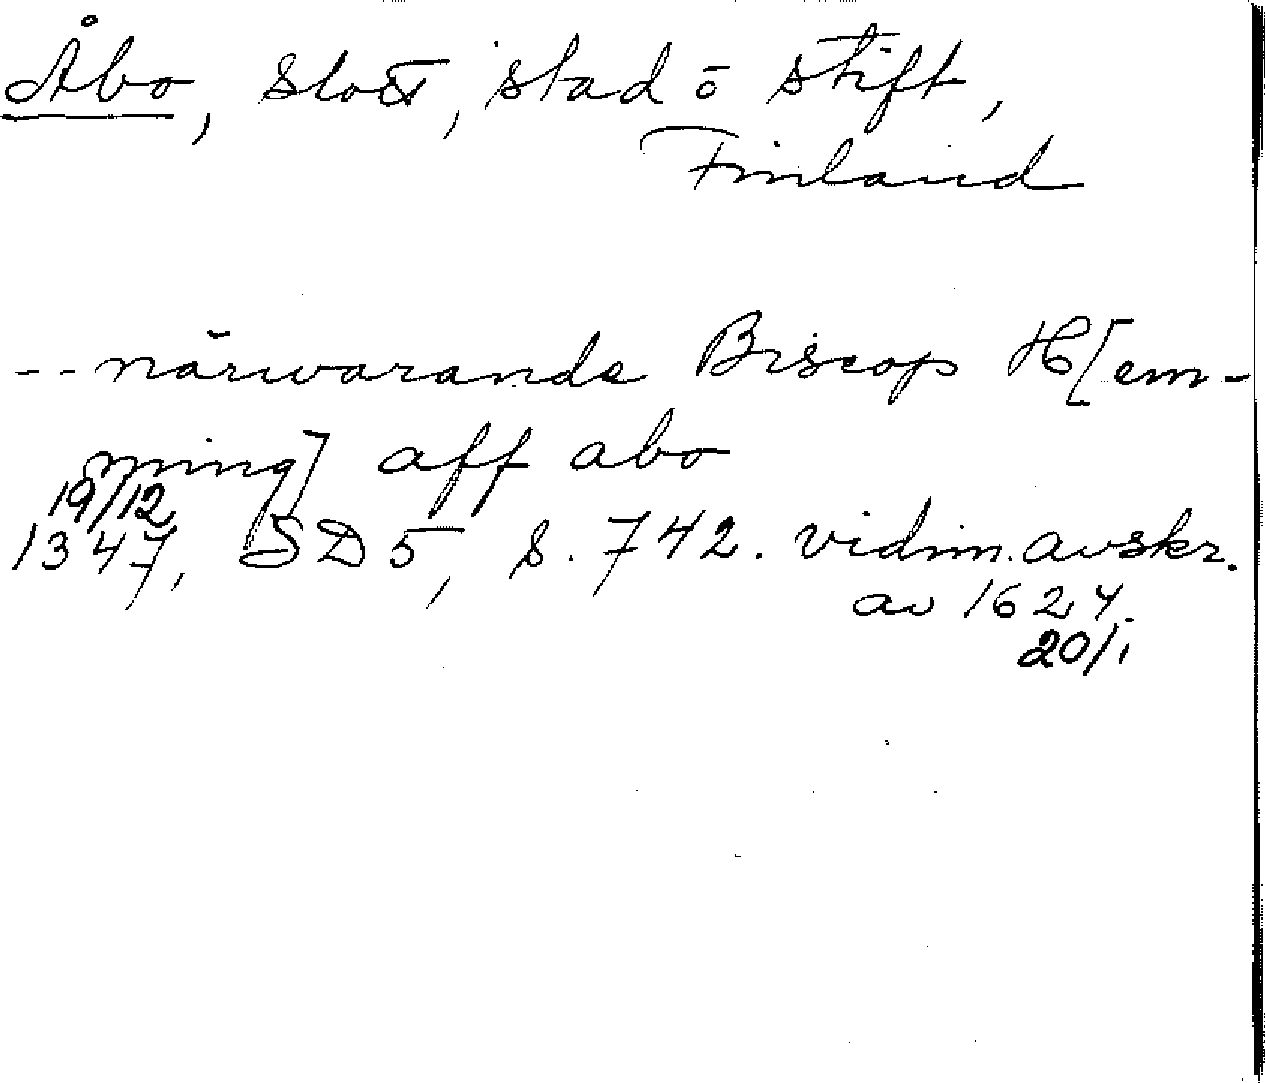 Åbo, slott, stad o stift,
Finland
-- närwarande Biscop H[em-
ming] aff abo
19/12
1347, SD 5, s. 742. vidim. avskr.
av 1624.
20/1